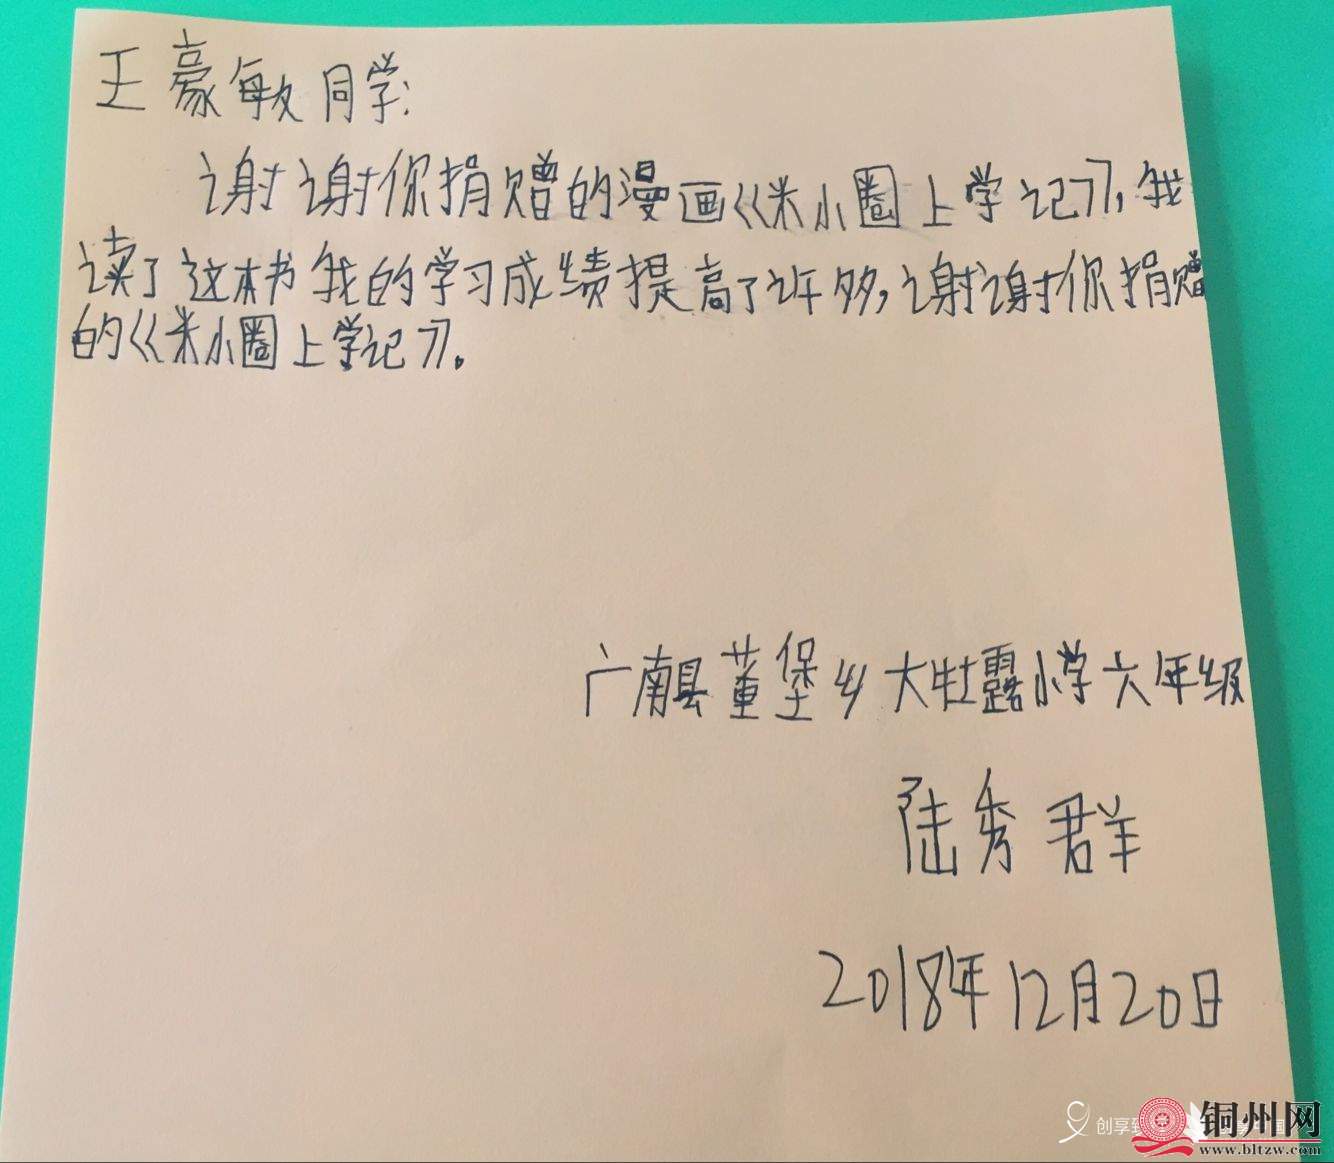 王豪敏同学：
谢谢你捐赠的漫画《米小圈上学记》，我
读了这本书我的学习成绩提高了许多，谢谢你捐赠
的《米小圈上学记》。
广南县董堡乡大牡露小学六年级
陆秀群
2018年12月20日
创享
铜州网
www.bltzw.com